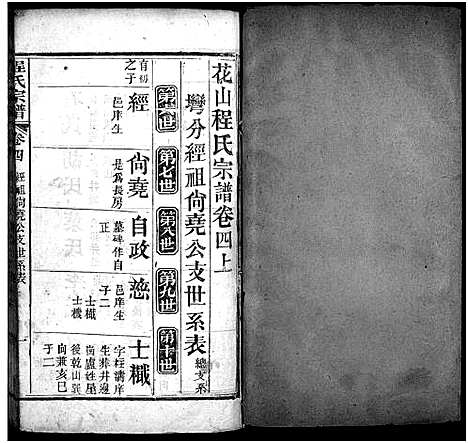 花山程氏宗譜卷四上
彎分經祖尙堯公支世系表 總支系
第六世
第七世
第八世
第九世
第十世
自初之子
經 邑庠生
尙堯 是爲長房
自政 墓碑作自正
邑庠生
子二
士檝
士檝
字柱
生葬井邊
後乾山巽
向兼亥巳
子二
程氏宗譜
卷四
經祖尙堯公支世系表
一